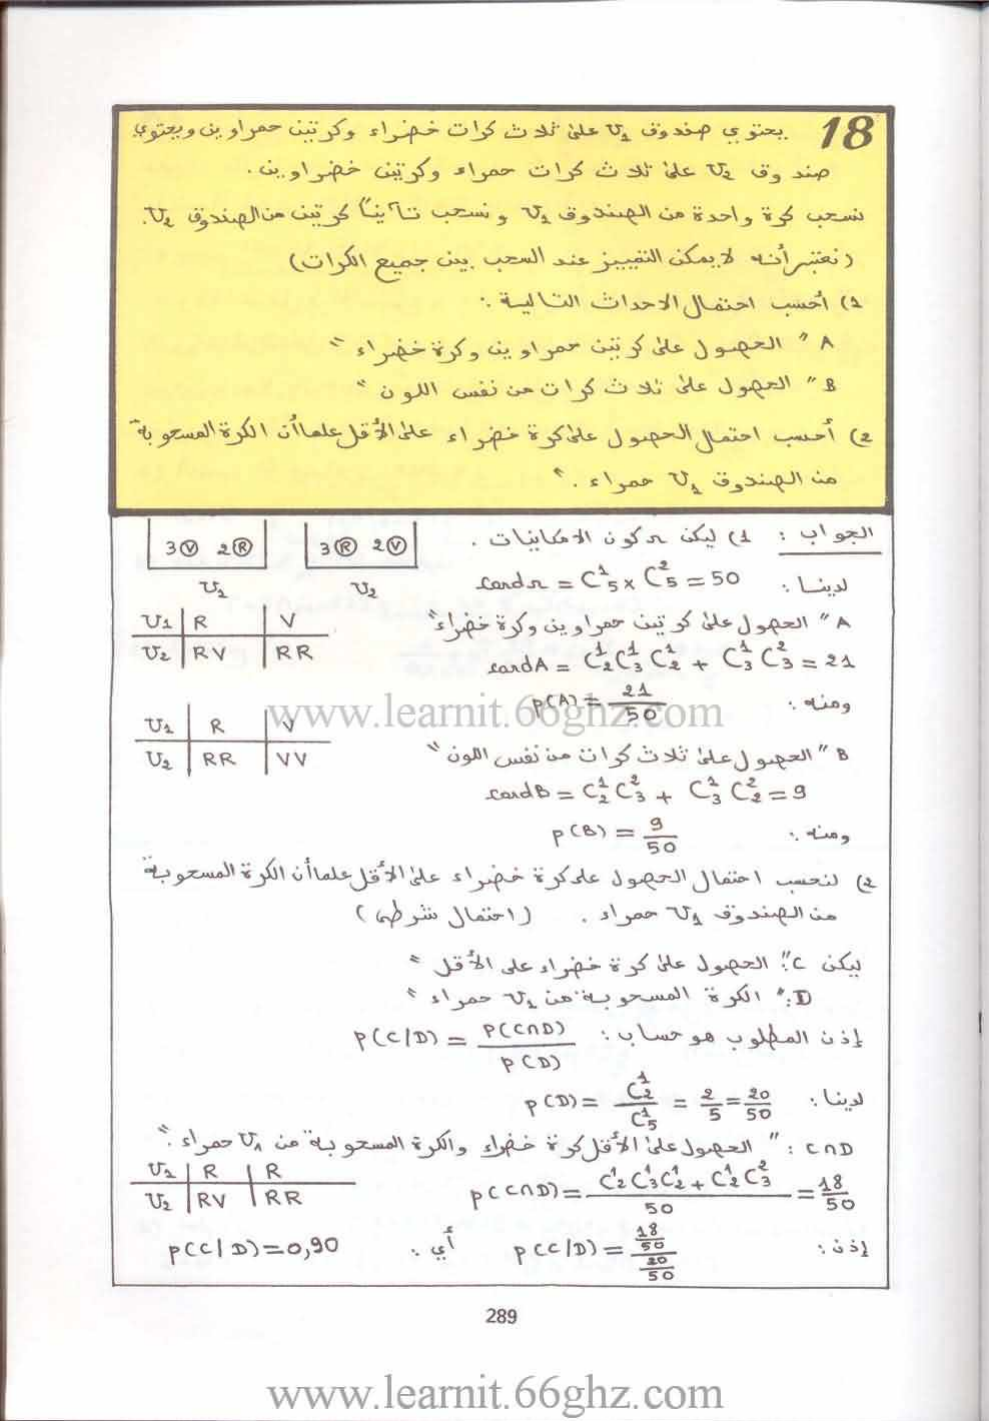 18 يحتوي صندوق U₁ على ثلاث كرات خضراء وكرتين حمراوين ويحتوي
صندوق U₂ على ثلاث كرات حمراء وكرتين خضراوين.
نسحب كرة واحدة من الصندوق U₁ ونسحب تأنيا كرتين من الصندوق U₂.
(نعتبر أنه لا يمكن التمييز عند السحب بين جميع الكرات)
1) أحسب احتمال الاحداث التالية :
A " الحصول على كرتين حمراوين وكرة خضراء "
B " الحصول على ثلاث كرات من نفس اللون "
2) أحسب احتمال الحصول على كرة خضراء على الأقل علما أن الكرة المسحوبة
من الصندوق U₁ حمراء .
الجواب : 1) ليكن Ω كون الامكانيات .
3Ⓥ 2Ⓡ
3Ⓡ 2Ⓥ
U₁
U₂
لدينا : cardΩ = C¹₅ × C²₅ = 50
A " الحصول على كرتين حمراوين وكرة خضراء "
U₁ | R | V
U₂ | RV | RR
cardA = C¹₂C¹₃C¹₂ + C¹₃C²₃ = 21
ومنه : p(A) = 21/50
www.learnit.66ghz.com
U₁ | R | V
U₂ | RR | VV
B " الحصول على ثلاث كرات من نفس اللون "
cardB = C¹₂C²₃ + C¹₃C²₂ = 9
ومنه : p(B) = 9/50
2) لنحسب احتمال الحصول على كرة خضراء على الأقل علما أن الكرة المسحوبة
من الصندوق U₁ حمراء . (احتمال شرطي)
ليكن C: " الحصول على كرة خضراء على الأقل "
D: " الكرة المسحوبة من U₁ حمراء "
إذن المطلوب هو حساب : p(C/D) = P(C∩D)/p(D)
لدينا : p(D) = C¹₂/C¹₅ = 2/5 = 20/50
C∩D : " الحصول على الأقل كرة خضراء والكرة المسحوبة من U₁ حمراء ."
U₁ | R | R
U₂ | RV | RR
p(C∩D) = (C¹₂C¹₃C¹₂ + C¹₂C²₃)/50 = 18/50
إذن : p(C/D) = (18/50)/(20/50) أي : p(C/D) = 0,90
289
www.learnit.66ghz.com